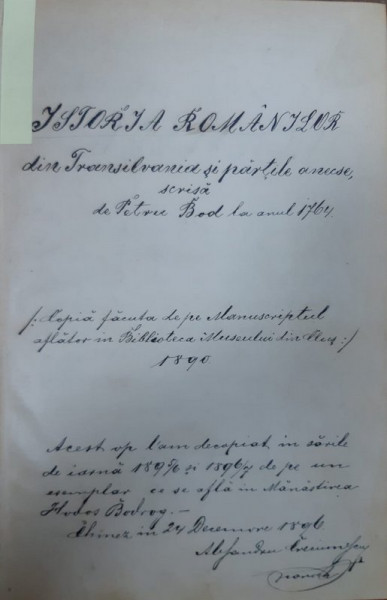 ISTORIA ROMÂNILOR
din Transilvania și părțile anecse,
scrisă
de Petru Bod la anul 1764.
/: Copiă făcuta de pe Manuscriptul
aflător in Biblioteca Museului din Cluj :/
1890
Acest op l'am decopiat în sările
de iarnă 1895/6 și 1896/7 de pe un
esemplar ce se află in Mânăstirea
Hodos Bodrog. —
în 24 Decemvre 1896
Alesandru